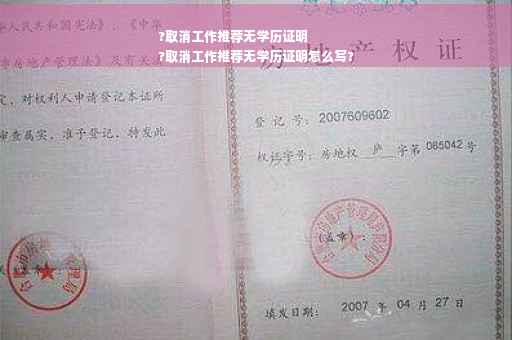 ?取消工作推荐无学历证明
?取消工作推荐无学历证明怎么写?
华人民共和国
《中华
房地产管理法》及有关
房地产权证
对权利人申请登记本证所
审查属实，准予登记，特发此
登 记 号: 2007609602
权证字号: 房地权 庐 字第 085042 号
(盖章):
填发日期: 2007 年 04 月 27 日